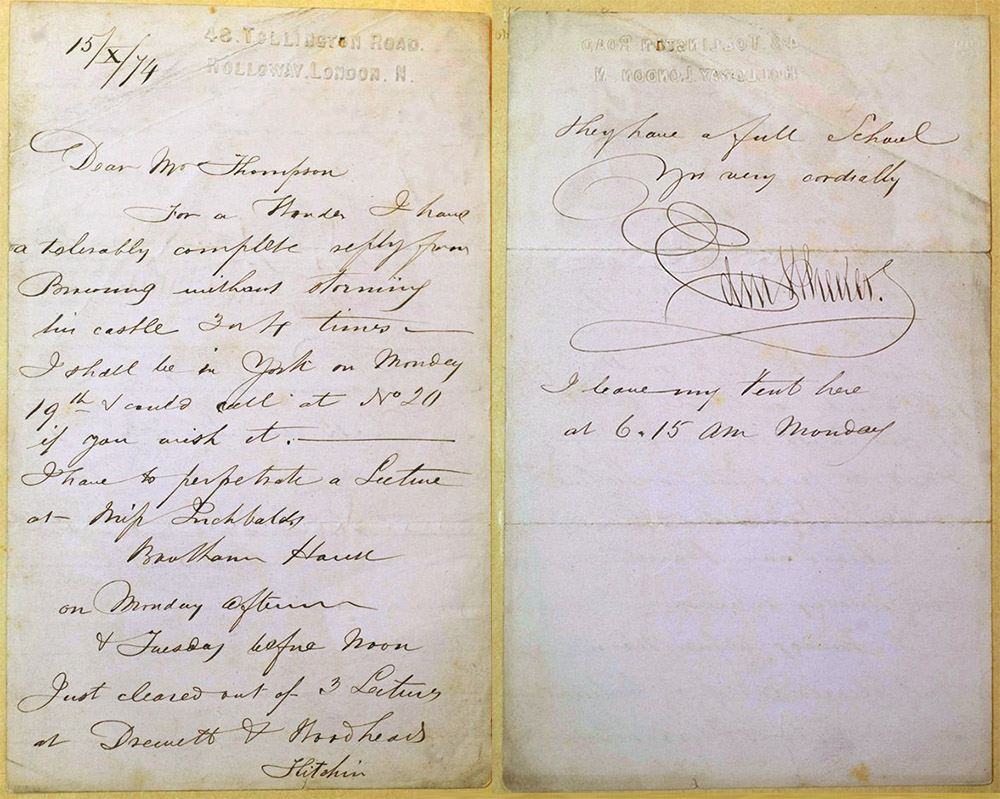 15/X/74
48. TOLLINGTON ROAD.
HOLLOWAY, LONDON. N.
Dear Mr Thompson
For a Wonder I have
a tolerably complete reply from
Browning without storming
his castle 3 or 4 times —
I shall be in York on Monday
19th & could call at No 20
if you wish it. —
I have to perpetrate a Lecture
at Miss Inchbalds
Bootham House
on Monday afternoon
& Tuesday before Noon
Just cleared out of 3 Lectures
at Drewett & Woodheads
Hitchin
they have a full School
Yrs very cordially
Edm
I leave my Tent here
at 6.15 am Monday